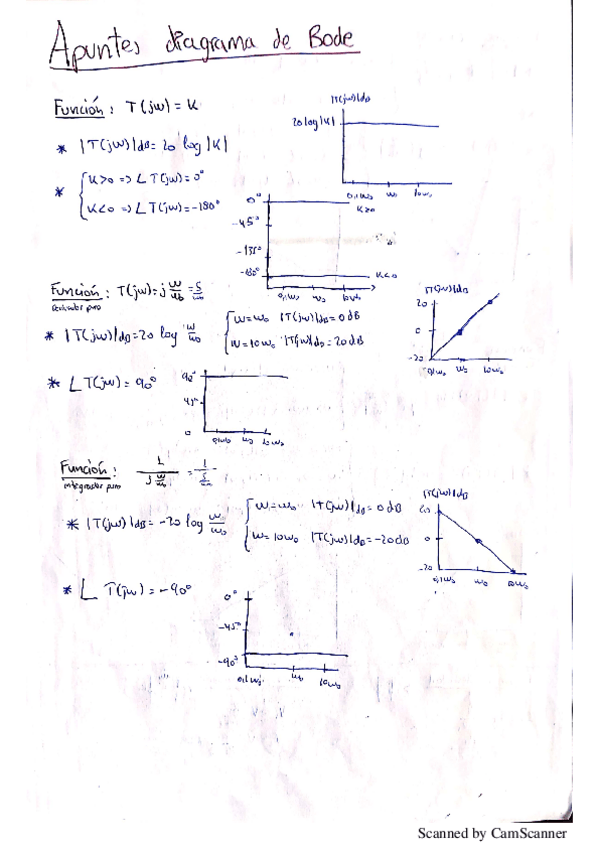 Apuntes diagrama de Bode
Función: T(jω) = K
* |T(jω)|dB = 20 log |K|
* { K>0 => ∠ T(jω) = 0°
K<0 => ∠ T(jω) = -180°
|T(jω)|dB
20 log |K|
0,1ω₀ ω₀ 10ω₀
0°
K>0
-45°
-135°
-180°
K<0
0,1ω₀ ω₀ 10ω₀
Función: T(jω) = j ω/ω₀ = S/ω₀
derivador puro
* |T(jω)|dB = 20 log ω/ω₀
{ ω=ω₀ |T(jω)|dB = 0 dB
ω=10ω₀ |T(jω)|dB = 20dB
|T(jω)|dB
20
0
-20
0,1ω₀ ω₀ 10ω₀
* ∠ T(jω) = 90°
90°
45°
0
0,1ω₀ ω₀ 10ω₀
Función: 1/(j ω/ω₀) = 1/(S/ω₀)
integrador puro
* |T(jω)|dB = -20 log ω/ω₀
{ ω=ω₀ |T(jω)|dB = 0dB
ω=10ω₀ |T(jω)|dB = -20dB
|T(jω)|dB
20
0
-20
0,1ω₀ ω₀ 10ω₀
* ∠ T(jω) = -90°
0°
-45°
-90°
0,1ω₀ ω₀ 10ω₀
Scanned by CamScanner